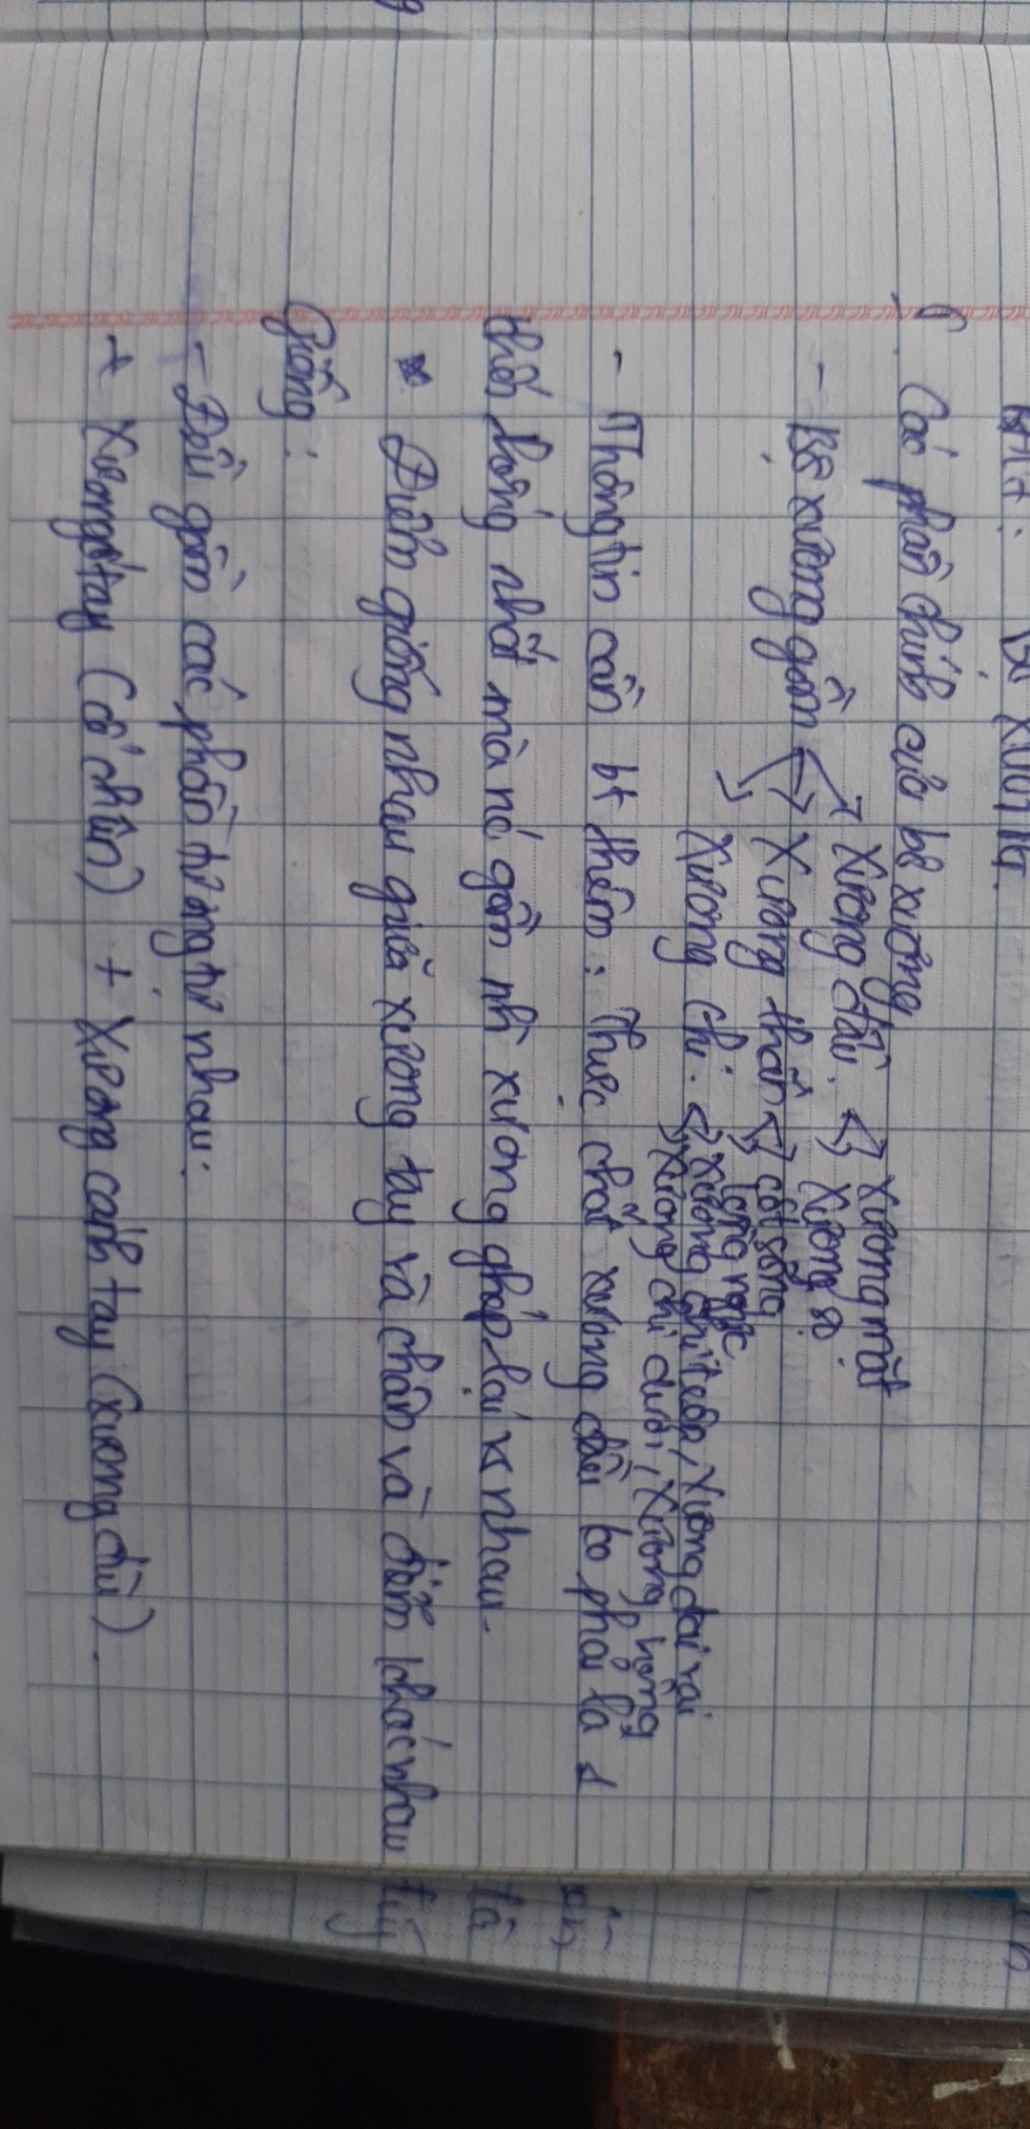 Bộ xương
I. Các phần chính của bộ xương
- Bộ xương gồm
Xương đầu. Xương mặt
Xương sọ.
Xương thân cột sống
lồng ngực
Xương chi. xương chi trên, xương đai vai
xương chi dưới, xương hông
- Thông tin cần bt thêm: Thực chất xương đầu ko phải là 1
khối thống nhất mà nó gồm nh xương ghép lại vs nhau.
* Điểm giống nhau giữa xương tay và chân và điểm khác nhau
Giống:
- Đều gồm các phần tương tự nhau:
+ Xương cổ tay (cổ chân) + Xương cánh tay (xương đùi).